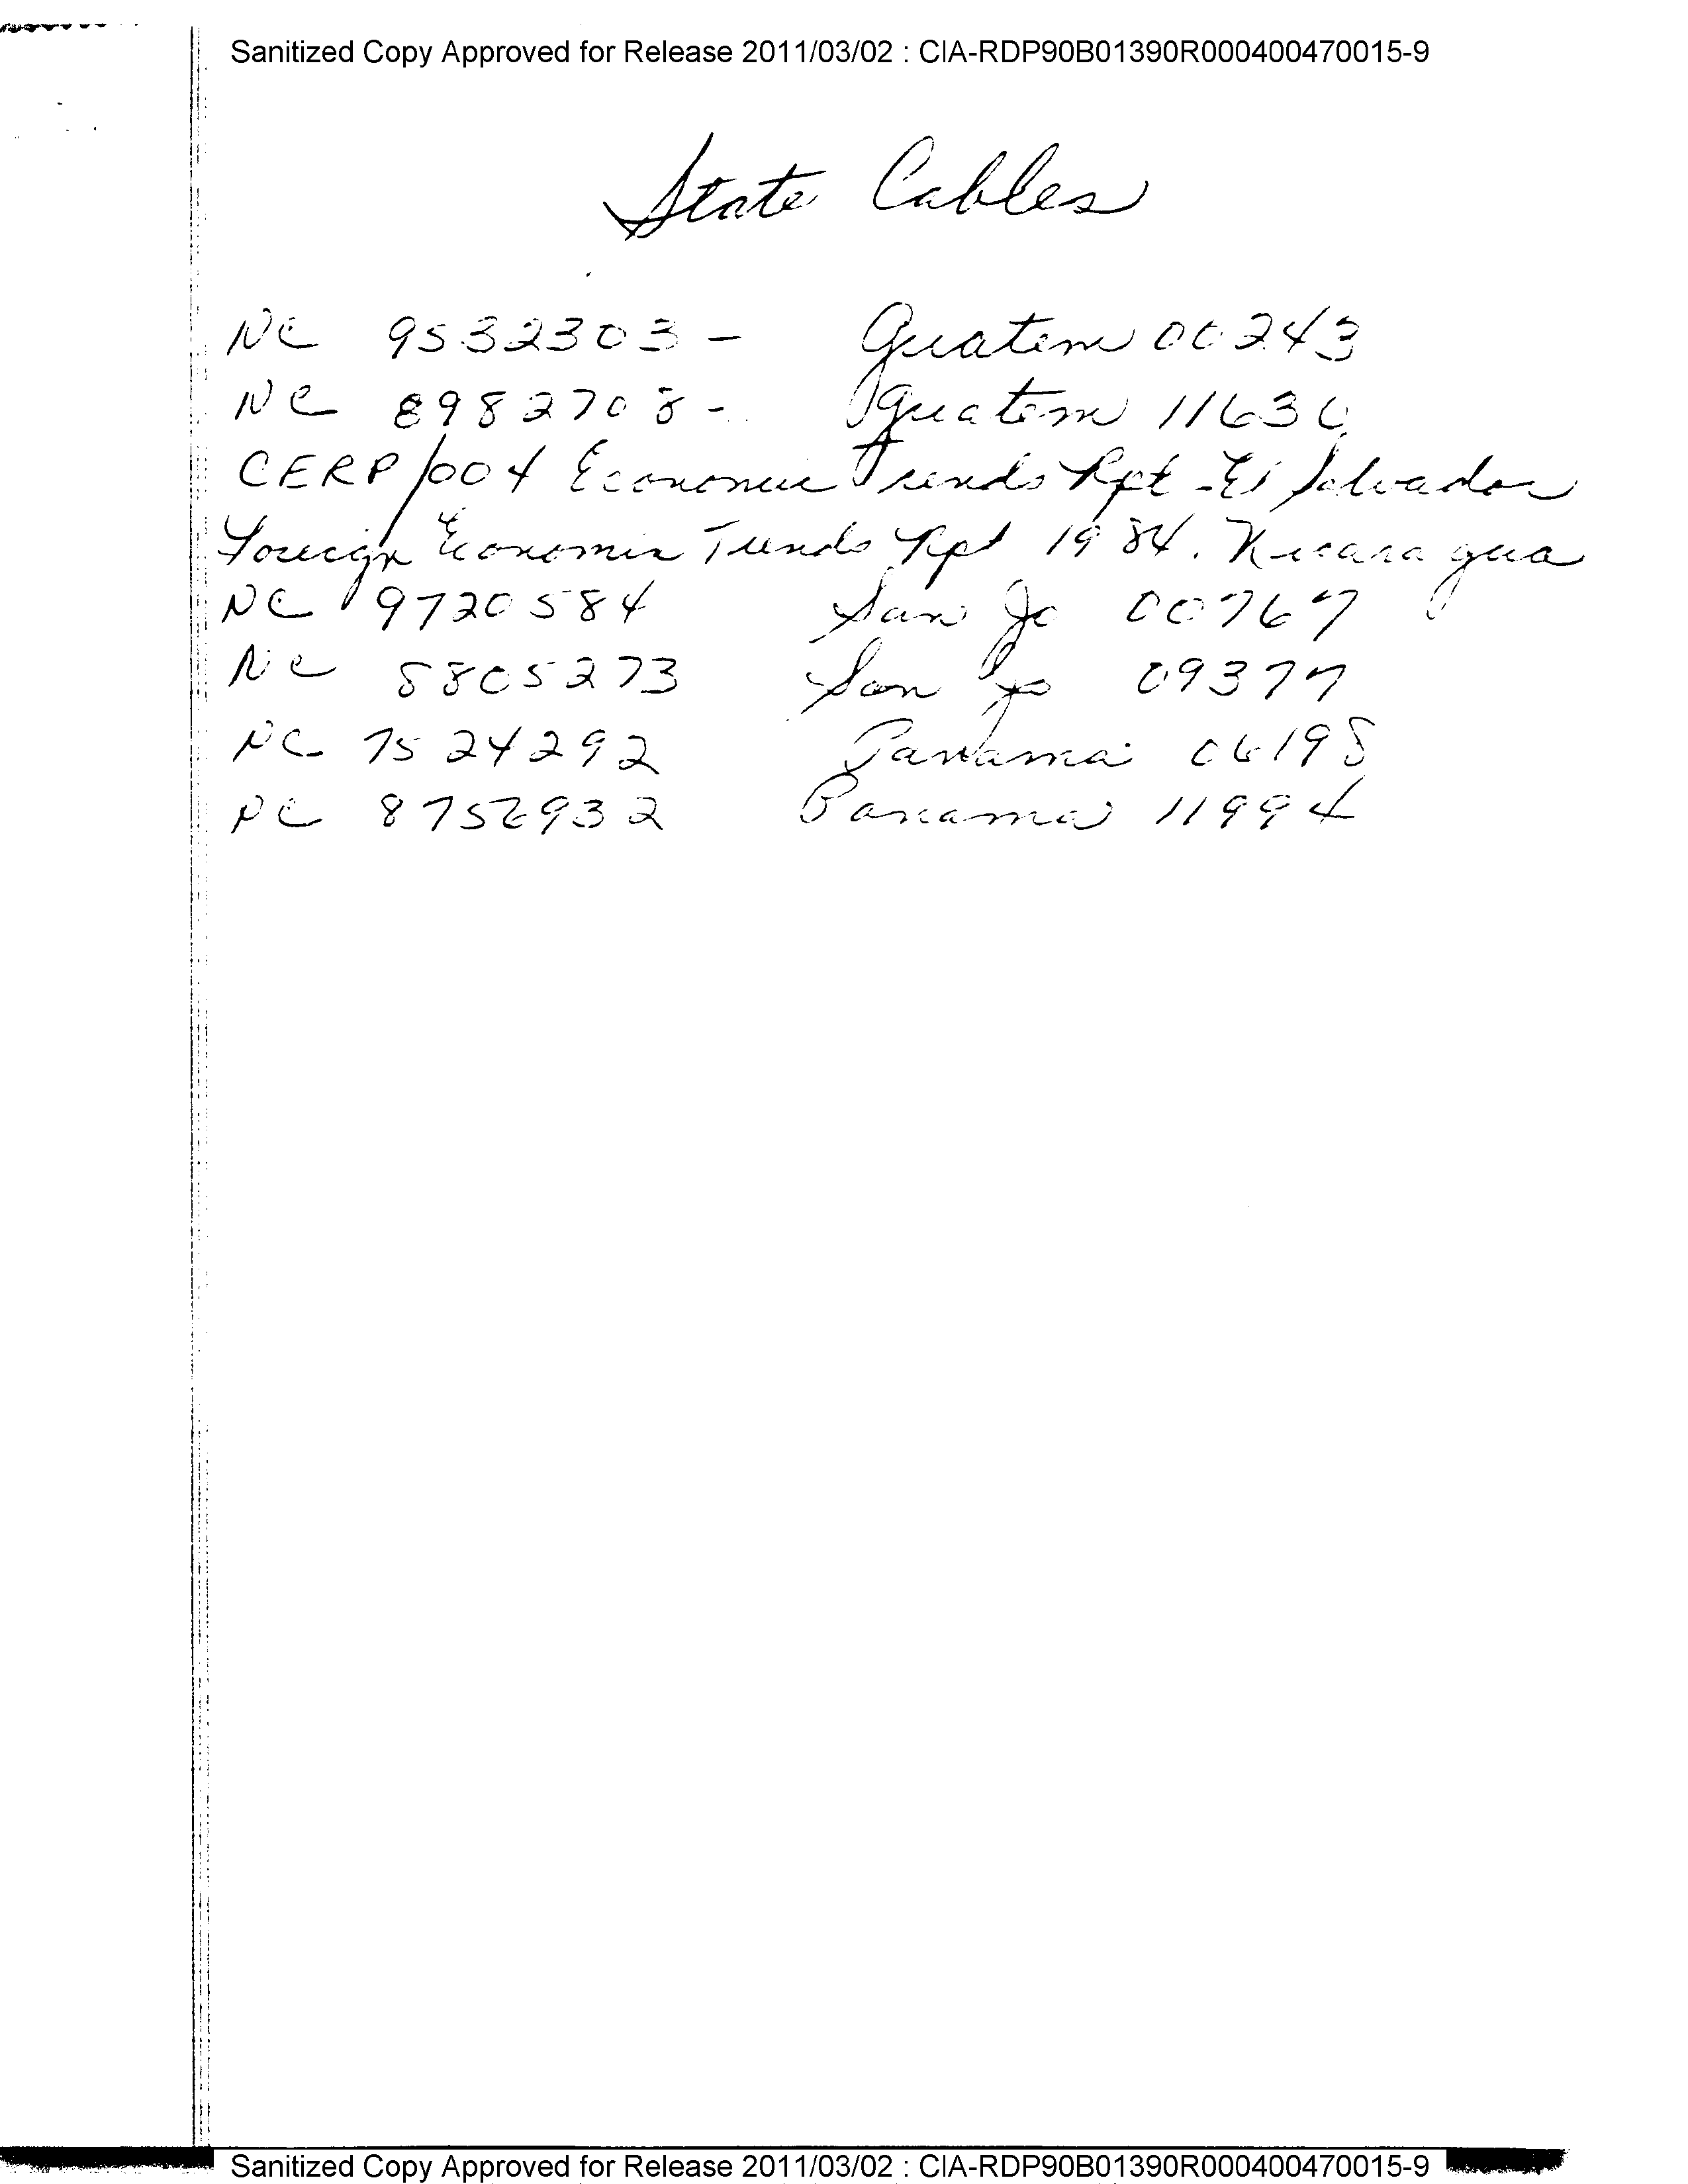 Sanitized Copy Approved for Release 2011/03/02 : CIA-RDP90B01390R000400470015-9
State Cables
NC 9532303 - Guatem 00243
NC 8982708 - Guatem 11636
CERP/004 Economic Trends Rpt - El Salvador
Foreign Economic Trends Rpt 1984. Nicaragua
NC 9720584 San Jo 00767
NC 8805273 San Jo 09377
NC 7524292 Panama 06198
NC 8752932 Panama 11994
Sanitized Copy Approved for Release 2011/03/02 : CIA-RDP90B01390R000400470015-9